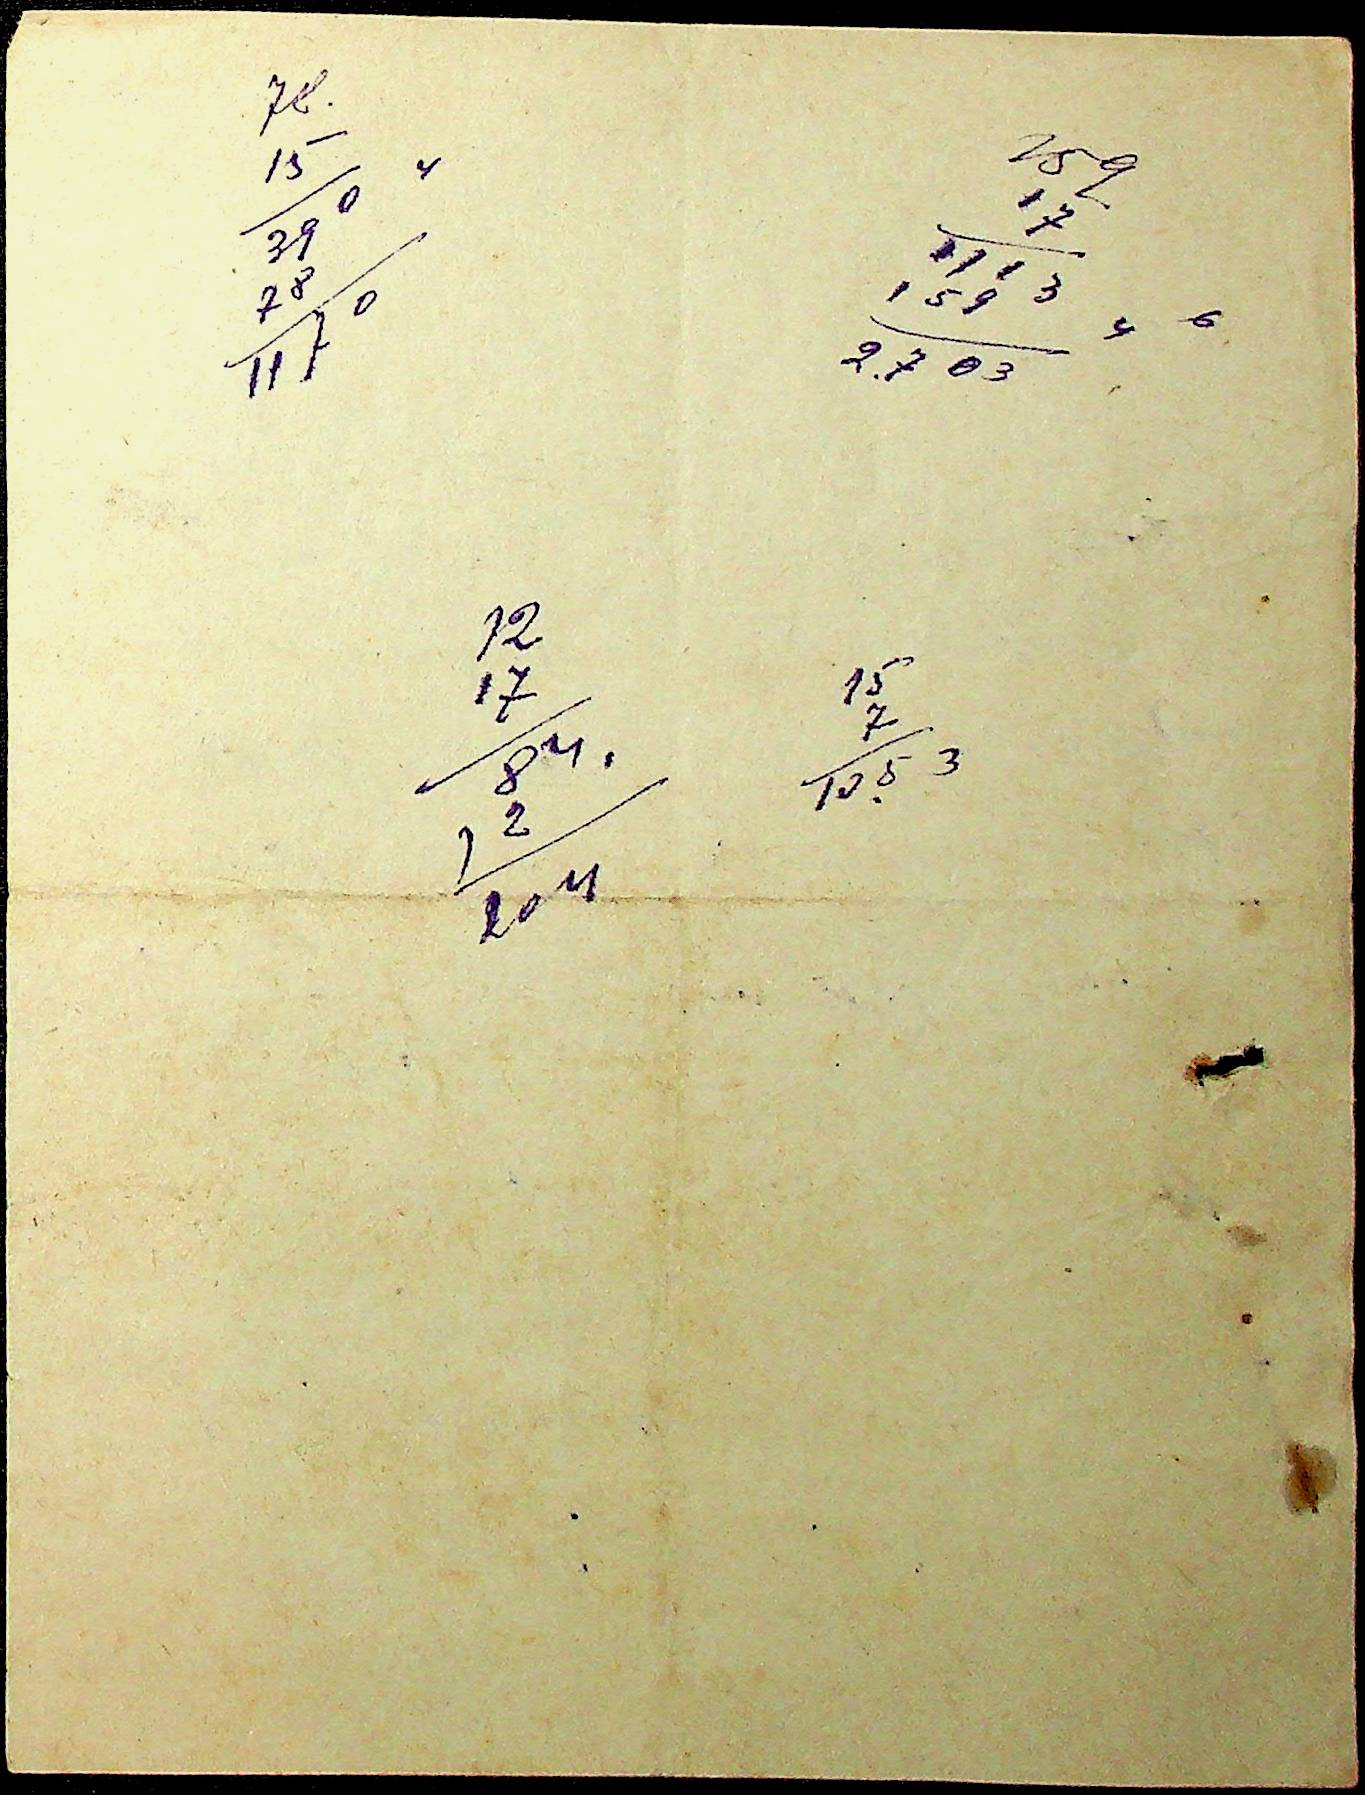 78.
15
390 4
78
1170
159
17
1113
159
2.703 4 6
12
17
84.
12
204
15
7
105 3